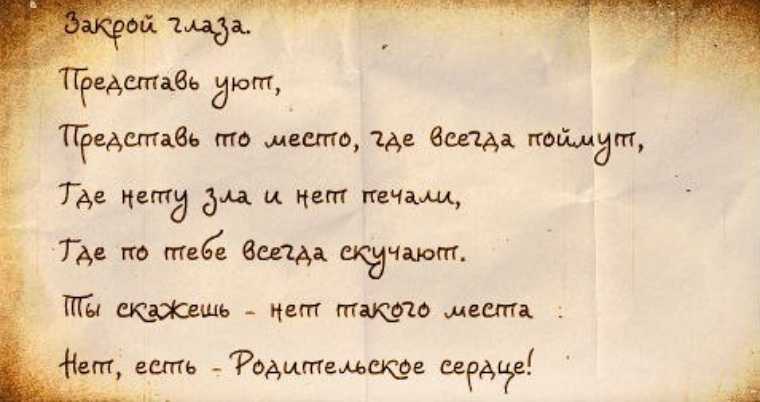 Закрой глаза.
Представь уют,
Представь то место, где всегда поймут,
Где нету зла и нет печали,
Где по тебе всегда скучают.
Ты скажешь - нет такого места :
Нет, есть - Родительское сердце!